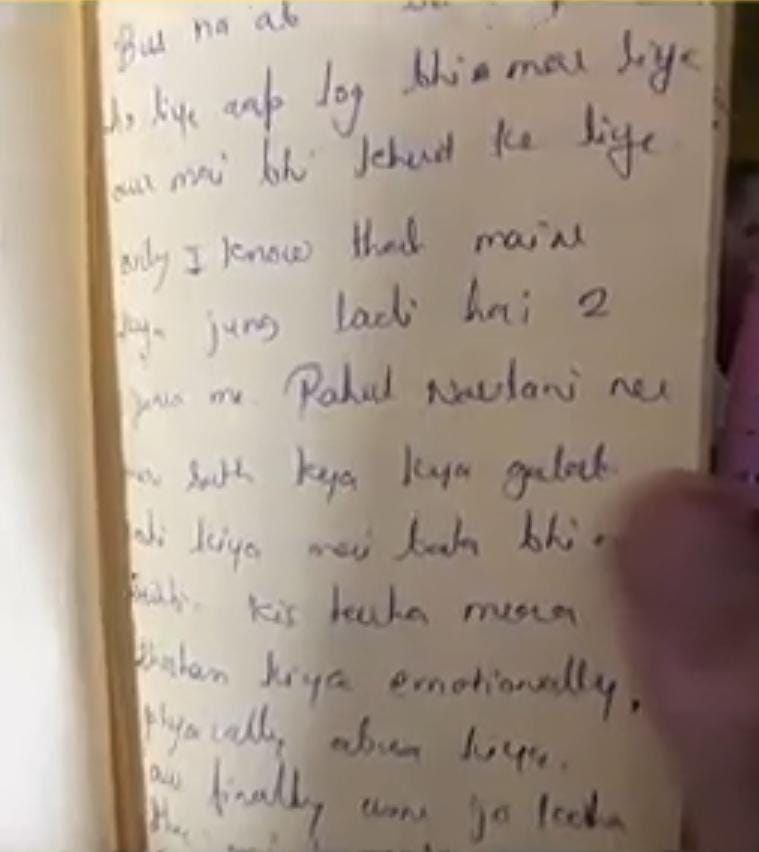 Bus no ab
liye aap log bhi mere liye
aur mai bhi khud ke liye
only I know that maine
kya jung ladi hai 2
years me. Rahul Navlani ne
sath kya kya galat
nahi kiya mai bata bhi
nahi. Kis tarha mera
kiya emotionally,
physically abuse kiya.
aur finally jo